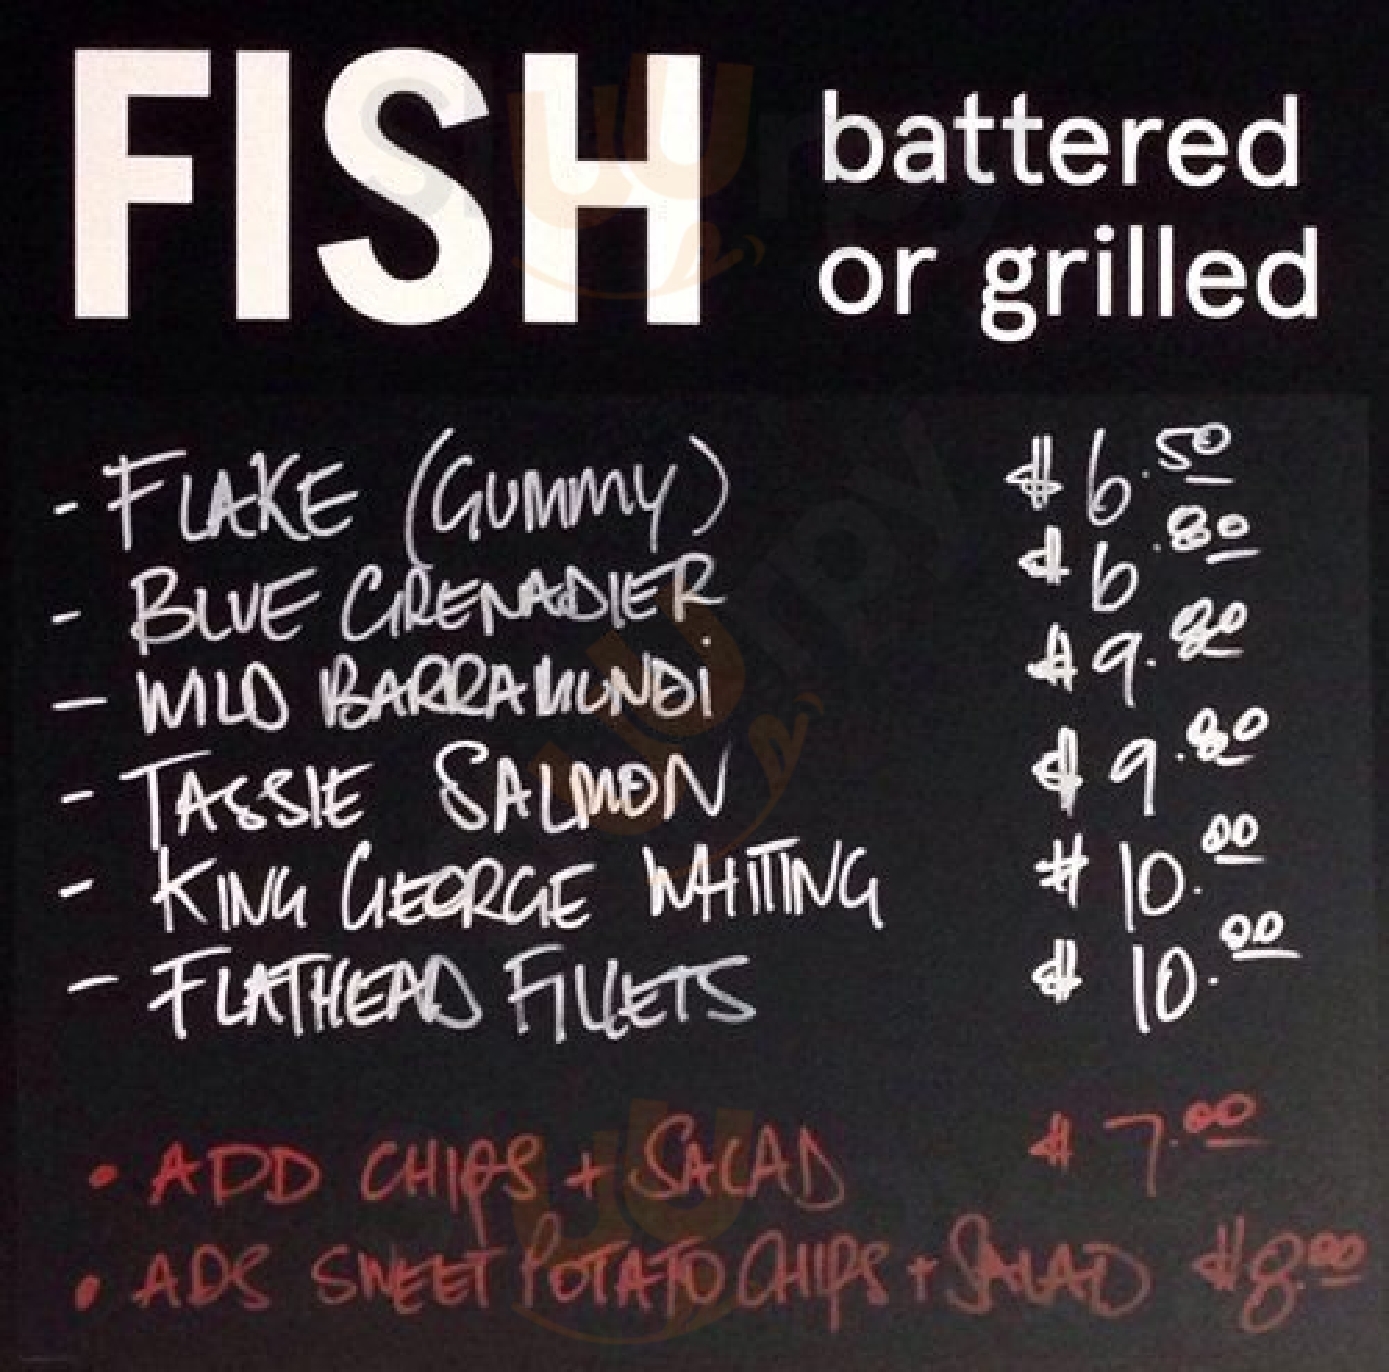 FISH battered
or grilled
- FLAKE (GUMMY) $6.50
- BLUE GRENADIER $6.80
- WILD BARRAMUNDI $9.80
- TASSIE SALMON $9.80
- KING GEORGE WHITING $10.00
- FLATHEAD FILLETS $10.00
• ADD CHIPS + SALAD $7.00
• ADD SWEET POTATO CHIPS + SALAD $8.00